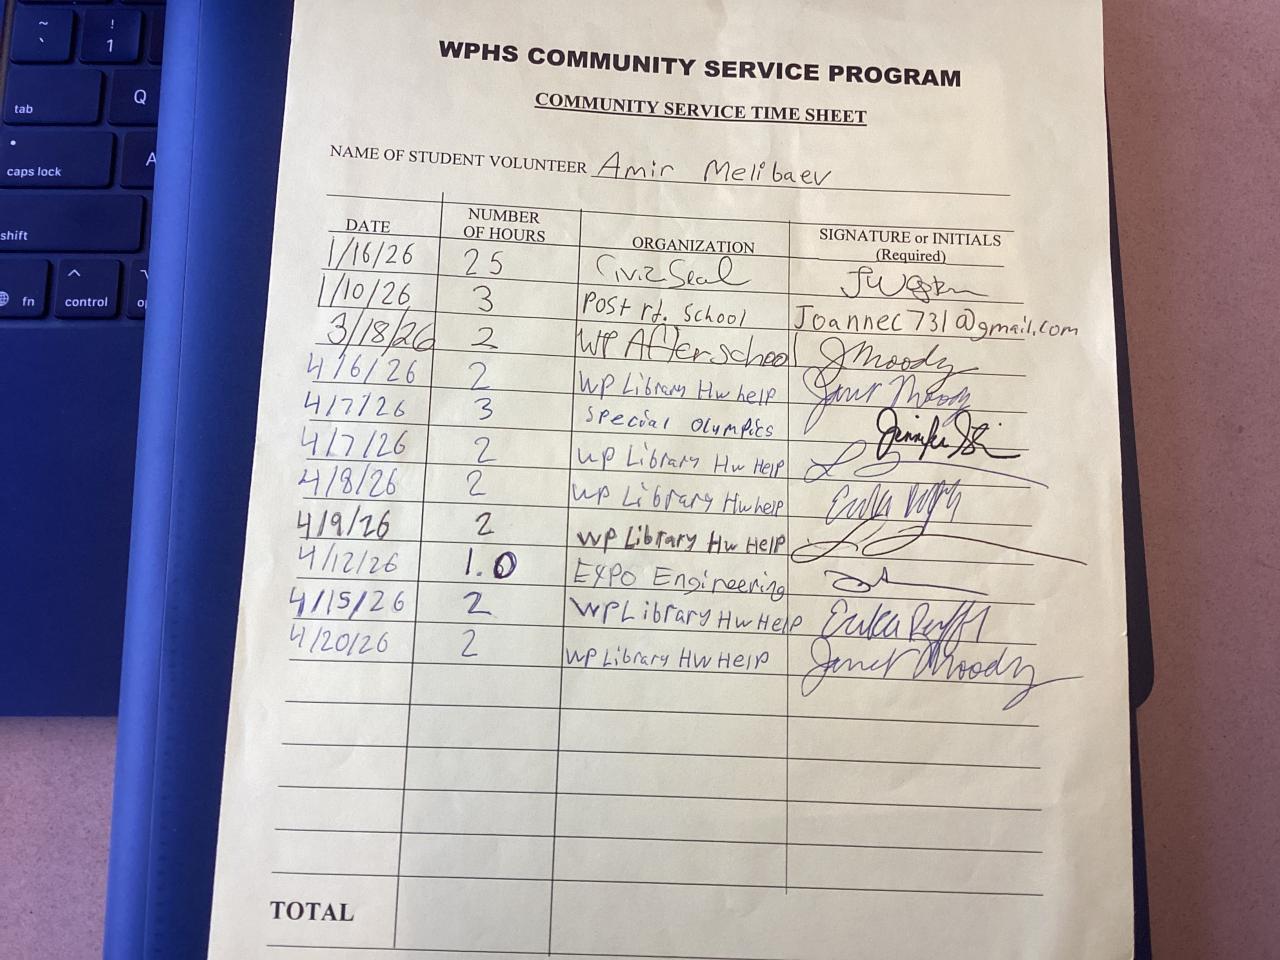 ~
`
!
1
tab
Q
caps lock
A
shift
fn
control
WPHS COMMUNITY SERVICE PROGRAM
COMMUNITY SERVICE TIME SHEET
NAME OF STUDENT VOLUNTEER Amir Melibaev
DATE NUMBER OF HOURS ORGANIZATION SIGNATURE or INITIALS (Required)
1/16/26 25 Civic Seal
1/10/26 3 Post rd. school Joannec731@gmail.com
3/18/26 2 WP Afterschool JMoody
4/6/26 2 WP Library Hw help Janet Moody
4/7/26 3 Special Olympics Jennifer
4/7/26 2 WP Library Hw Help
4/8/26 2 WP Library Hw help Erika
4/9/26 2 WP Library Hw Help
4/12/26 1.0 EXPO Engineering
4/15/26 2 WP Library Hw Help Erika
4/20/26 2 WP Library HW Help Janet Moody
TOTAL